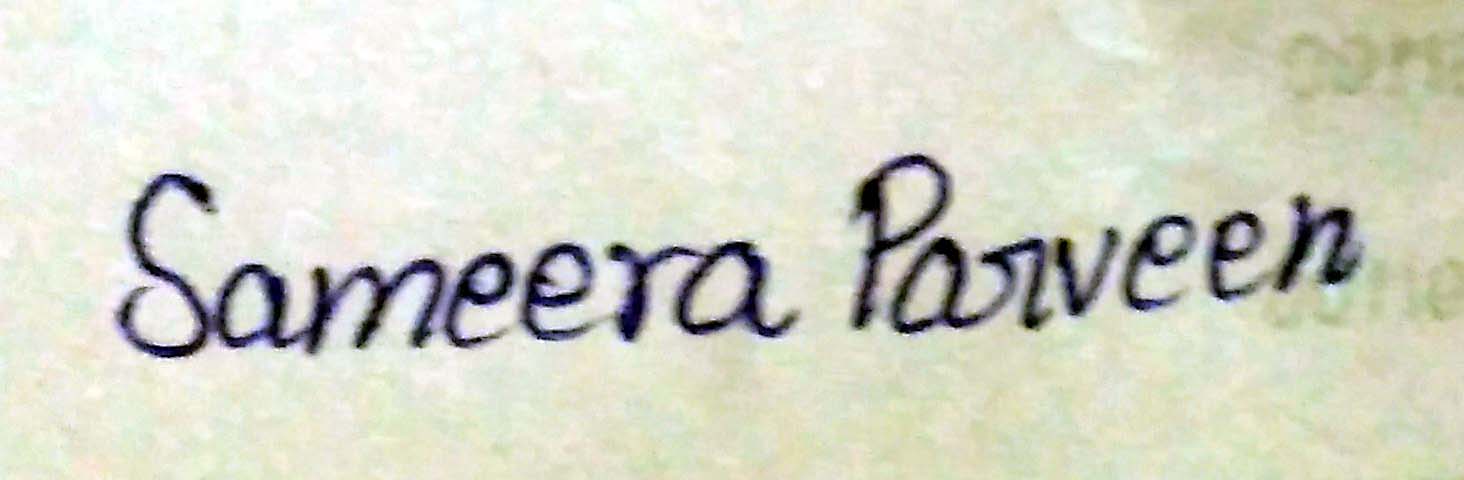 Sameera Parveen